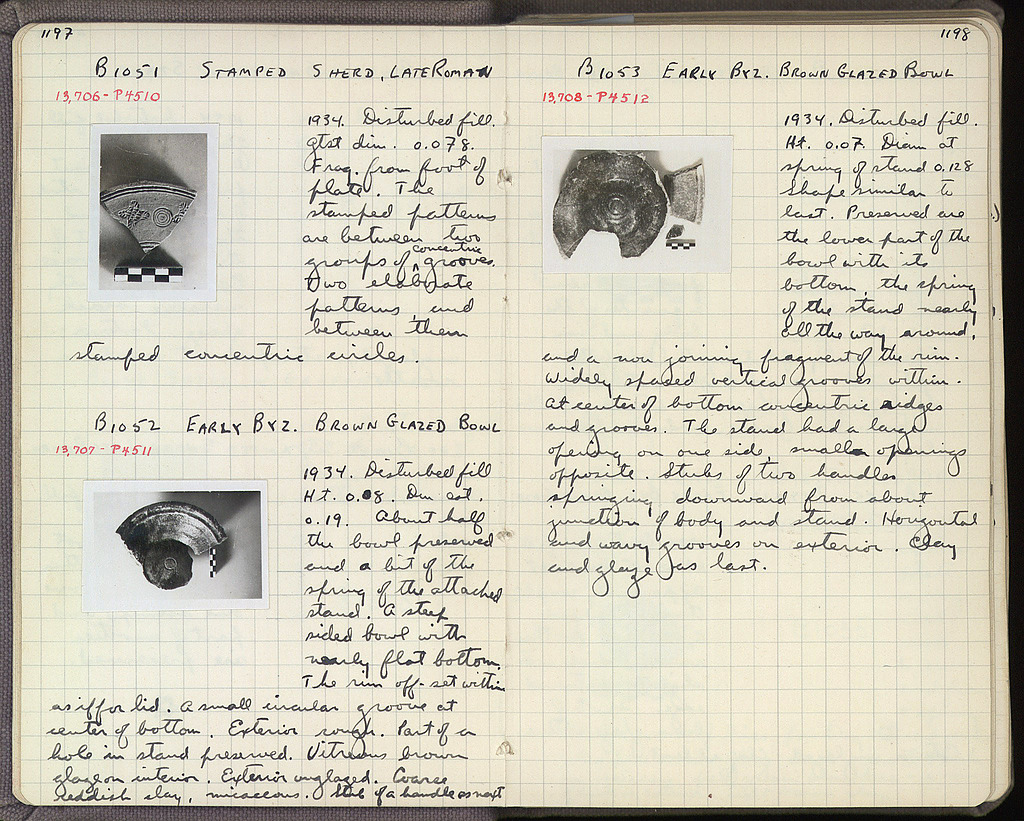 1197
B1051 STAMPED SHERD, LATE ROMAN
13,706 - P4510
1934. Disturbed fill.
gtst dim. 0.078.
Frag. from foot of
plate. The
stamped patterns
are between two
concentric
groups of ^ grooves.
Two elaborate
patterns, and
between them
stamped concentric circles.
B1052 EARLY BYZ. BROWN GLAZED BOWL
13,707 - P4511
1934. Disturbed fill
Ht. 0.08. Dm est.
0.19. About half
the bowl preserved
and a bit of the
spring of the attached
stand. A steep
sided bowl with
nearly flat bottom.
The rim off-set within
as if for lid. A small circular groove at
center of bottom. Exterior rough. Part of a
hole in stand preserved. Vitreous brown
glaze on interior. Exterior unglazed. Coarse
reddish clay, micaceous. Stub of a handle as next
1198
B1053 EARLY BYZ. BROWN GLAZED BOWL
13,708 - P4512
1934. Disturbed fill.
Ht. 0.07. Diam at
spring of stand 0.128
Shape similar to
last. Preserved are
the lower part of the
bowl with its
bottom, the spring
of the stand nearly
all the way around,
and a non joining fragment of the rim.
Widely spaced vertical grooves within.
At center of bottom concentric ridges
and grooves. The stand had a large
opening on one side, smaller openings
opposite. Stubs of two handles
springing downward from about
junction of body and stand. Horizontal
and wavy grooves on exterior. Clay
and glaze as last.